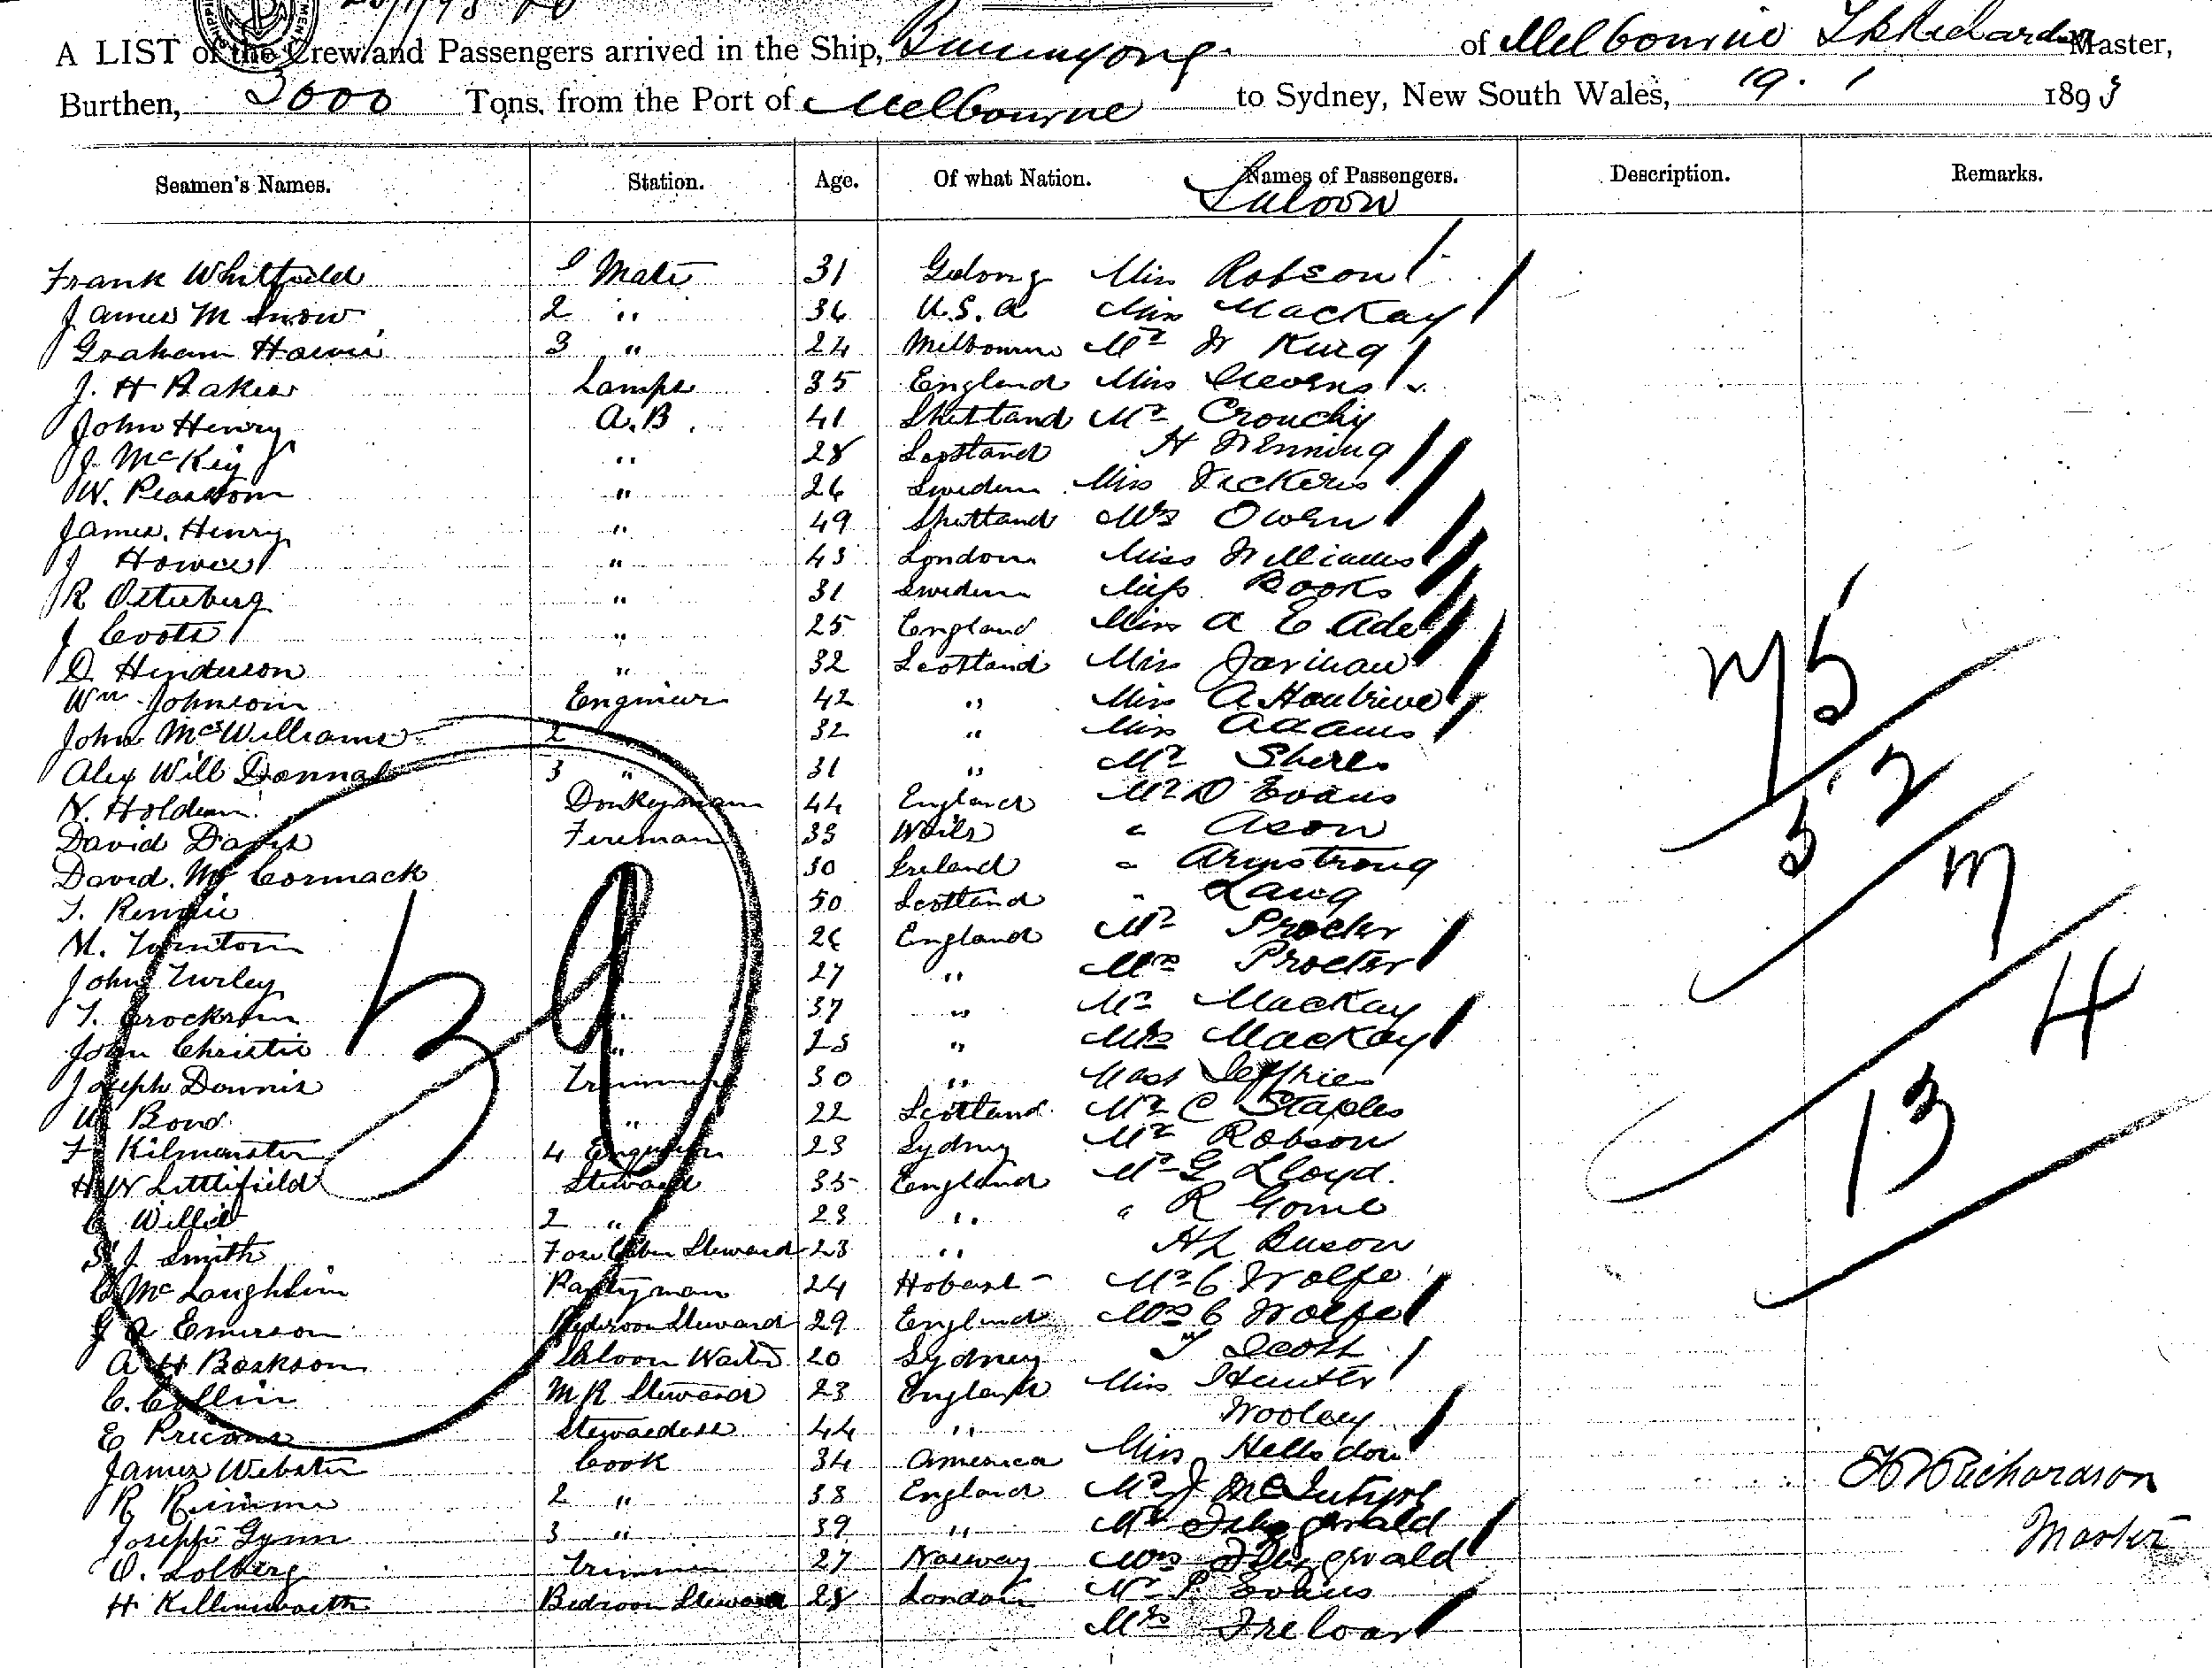 A LIST of the Crew and Passengers arrived in the Ship, Buninyong of Melbourne Richardson Master,
Burthen, 3000 Tons. from the Port of Melbourne to Sydney, New South Wales, 19. 1 1893
Seamen's Names. Station. Age. Of what Nation. Names of Passengers. Description. Remarks.
Saloon
Frank Whitfield 1 Mate 31 Gelong Miss Robson
James M Snow 2 " 36 U.S.a Miss MacKay
Graham Howie 3 " 24 Melbourne Mr W King
J. H Baker Lamps 35 England Miss Stevens
John Henry A.B. 41 Shetland Mr Crouchy
J. McKey " 28 Scotland H Wenning
W. Pearson " 26 Sweden Miss Vickers
James Henry " 49 Shetland Mrs Owen
J Howell " 43 London Miss Williams
R Osterberg " 31 Sweden Miss Books
J Coots " 25 England Miss A E Ade
D. Henderson " 32 Scotland Miss Jarman
Wm Johnson Engineer 42 " Miss A
John McWilliams 2 32 " Miss Adams
Alex Will Donnal 3 " 31 " Mr Sheres
N. Holden Donkeyman 44 England Mr D Evans
David Davis Fireman 33 Wails " Ason
David. Mc Cormack 30 Ireland " Armstrong
T. Rennie 50 Scotland " Lang
M. Tointon 26 England Mr Procter
John Turley 27 " Mrs Procter
T. 37 " Mr MacKay
John Christie " 23 " Mrs MacKay
Joseph Dennis Trimmer 30 " Mast Jeffries
W Bond " 22 Scotland Mr C Staples
F. Kilminster 4 Engineer 23 Sydney Mr Robson
H W Littlefield Steward 35 England Mr G Lloyd.
C Willis 2 " 23 " " R Gome
S. J. Smith Fore Cabin Steward 23 " HL Buson
C McLaughlin Pantryman 24 Hobart Mr C Wolfe
J A Emerson Bedroom Steward 29 England Mrs C Wolfe
A H Saloon Waiter 20 Sydney Scott
C. Collin M R Steward 23 England Miss Hunter
Wooley
E Stewardess 44 "
James Webster Cook 34 America Miss Hellsdon
R Rimmer 2 " 38 England Mr J McIntyre
Joseph Gynn 3 " 39 " Mr Fitzgerald
O. Solberg Trimmer 27 Norway Mrs Fitzgerald
H Killinworth Bedroom Steward 28 London Mr P. Evans
Mrs Treloar
39
m 5
5 2
m
4
13
Richardson
Master